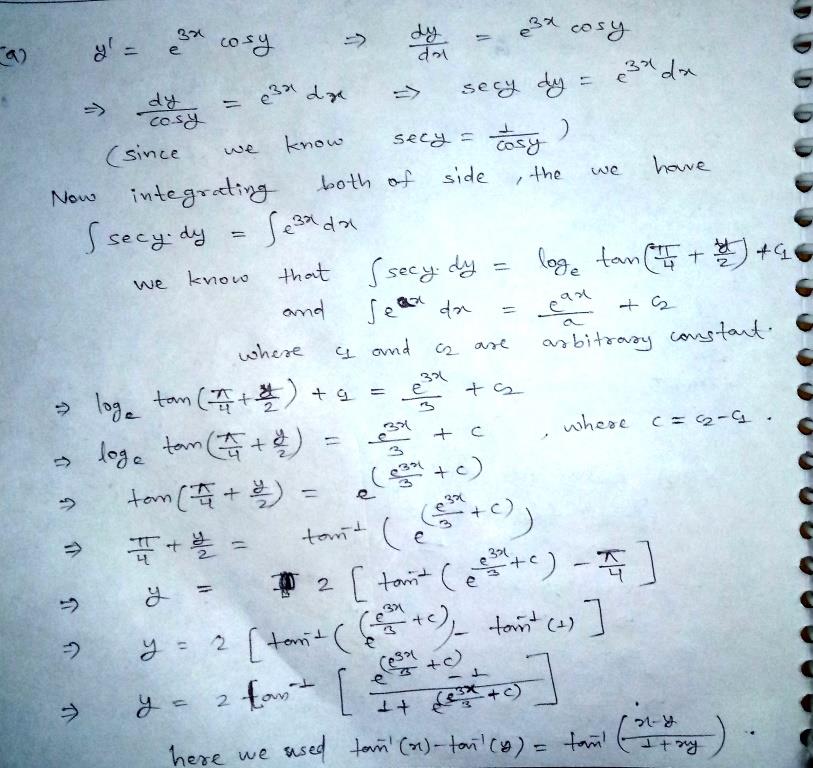 (a) y' = e^{3x} cosy ⇒ dy/dx = e^{3x} cosy
⇒ dy/cosy = e^{3x} dx ⇒ secy dy = e^{3x} dx
(since we know secy = 1/cosy)
Now integrating both of side, the we have
∫ secy·dy = ∫ e^{3x} dx
we know that ∫ secy·dy = log_e tan(π/4 + y/2) + c₁
and ∫ e^{ax} dx = e^{ax}/a + c₂
where c₁ and c₂ are arbitrary constant.
⇒ log_e tan(π/4 + y/2) + c₁ = e^{3x}/3 + c₂
⇒ log_e tan(π/4 + y/2) = e^{3x}/3 + c , where c = c₂-c₁ .
⇒ tan(π/4 + y/2) = e^{(e^{3x}/3 + c)}
⇒ π/4 + y/2 = tan⁻¹ (e^{(e^{3x}/3 + c)})
⇒ y = 2 [tan⁻¹ (e^{e^{3x}/3 + c}) - π/4]
⇒ y = 2 [tan⁻¹ (e^{(e^{3x}/3 + c)}) - tan⁻¹ (1)]
⇒ y = 2 tan⁻¹ [(e^{(e^{3x}/3 + c)} - 1)/(1 + e^{(e^{3x}/3 + c)})]
here we used tan⁻¹(x)-tan⁻¹(y) = tan⁻¹ ((x-y)/(1+xy)) .